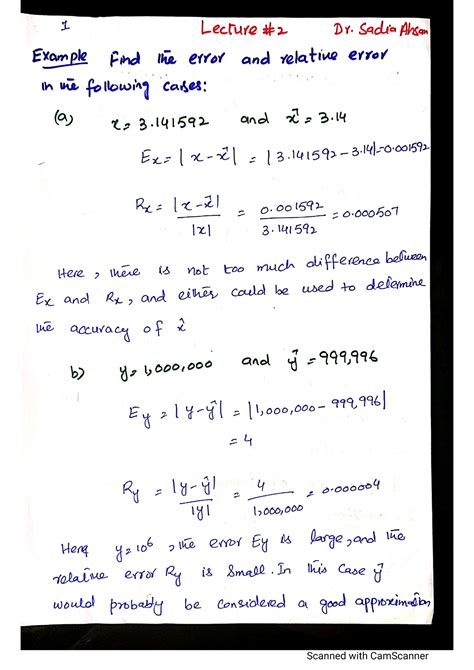 1
Lecture #2 Dr. Sadia Ahsan
Example Find the error and relative error
in the following cases:
(a) x = 3.141592 and x̂ = 3.14
Ex = |x - x̂| = |3.141592 - 3.14| = 0.001592
Rx = |x - x̂| / |x| = 0.001592 / 3.141592 = 0.000507
Here, there is not too much difference between
Ex and Rx, and either could be used to determine
the accuracy of x̂
b) y = 1,000,000 and ŷ = 999,996
Ey = |y - ŷ| = |1,000,000 - 999,996|
= 4
Ry = |y - ŷ| / |y| = 4 / 1,000,000 = 0.000004
Here, y = 10⁶, the error Ey is large, and the
relative error Ry is small. In this case ŷ
would probably be considered a good approximation
Scanned with CamScanner